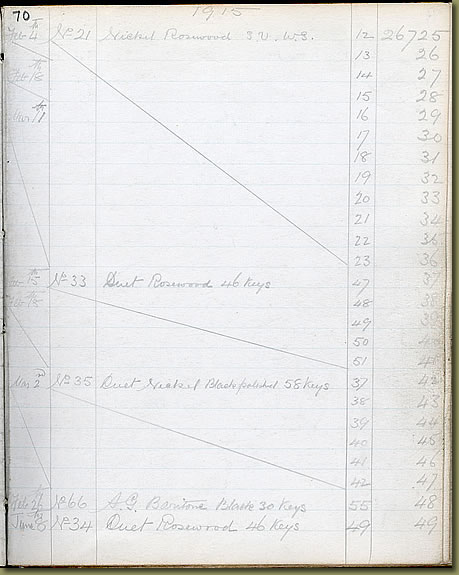 70 1915
Feb 4th No 21 Nickel Rosewood S.V. W.S. 12 26725
13 26
Feb 18th 14 27
15 28
Mar 11th 16 29
17 30
18 31
19 32
20 33
21 34
22 35
23 36
15th No 33 Duet Rosewood 46 Keys 47 37
Feb 18 48 38
49 39
50
51 41
Mar 2nd No 35 Duet Nickel Black polished 58 Keys 37 42
38 43
39 44
40 45
41 46
42 47
Feb No 66 A.G. Baritone Black 30 Keys 55 48
June 8th No 34 Duet Rosewood 46 Keys 49 49